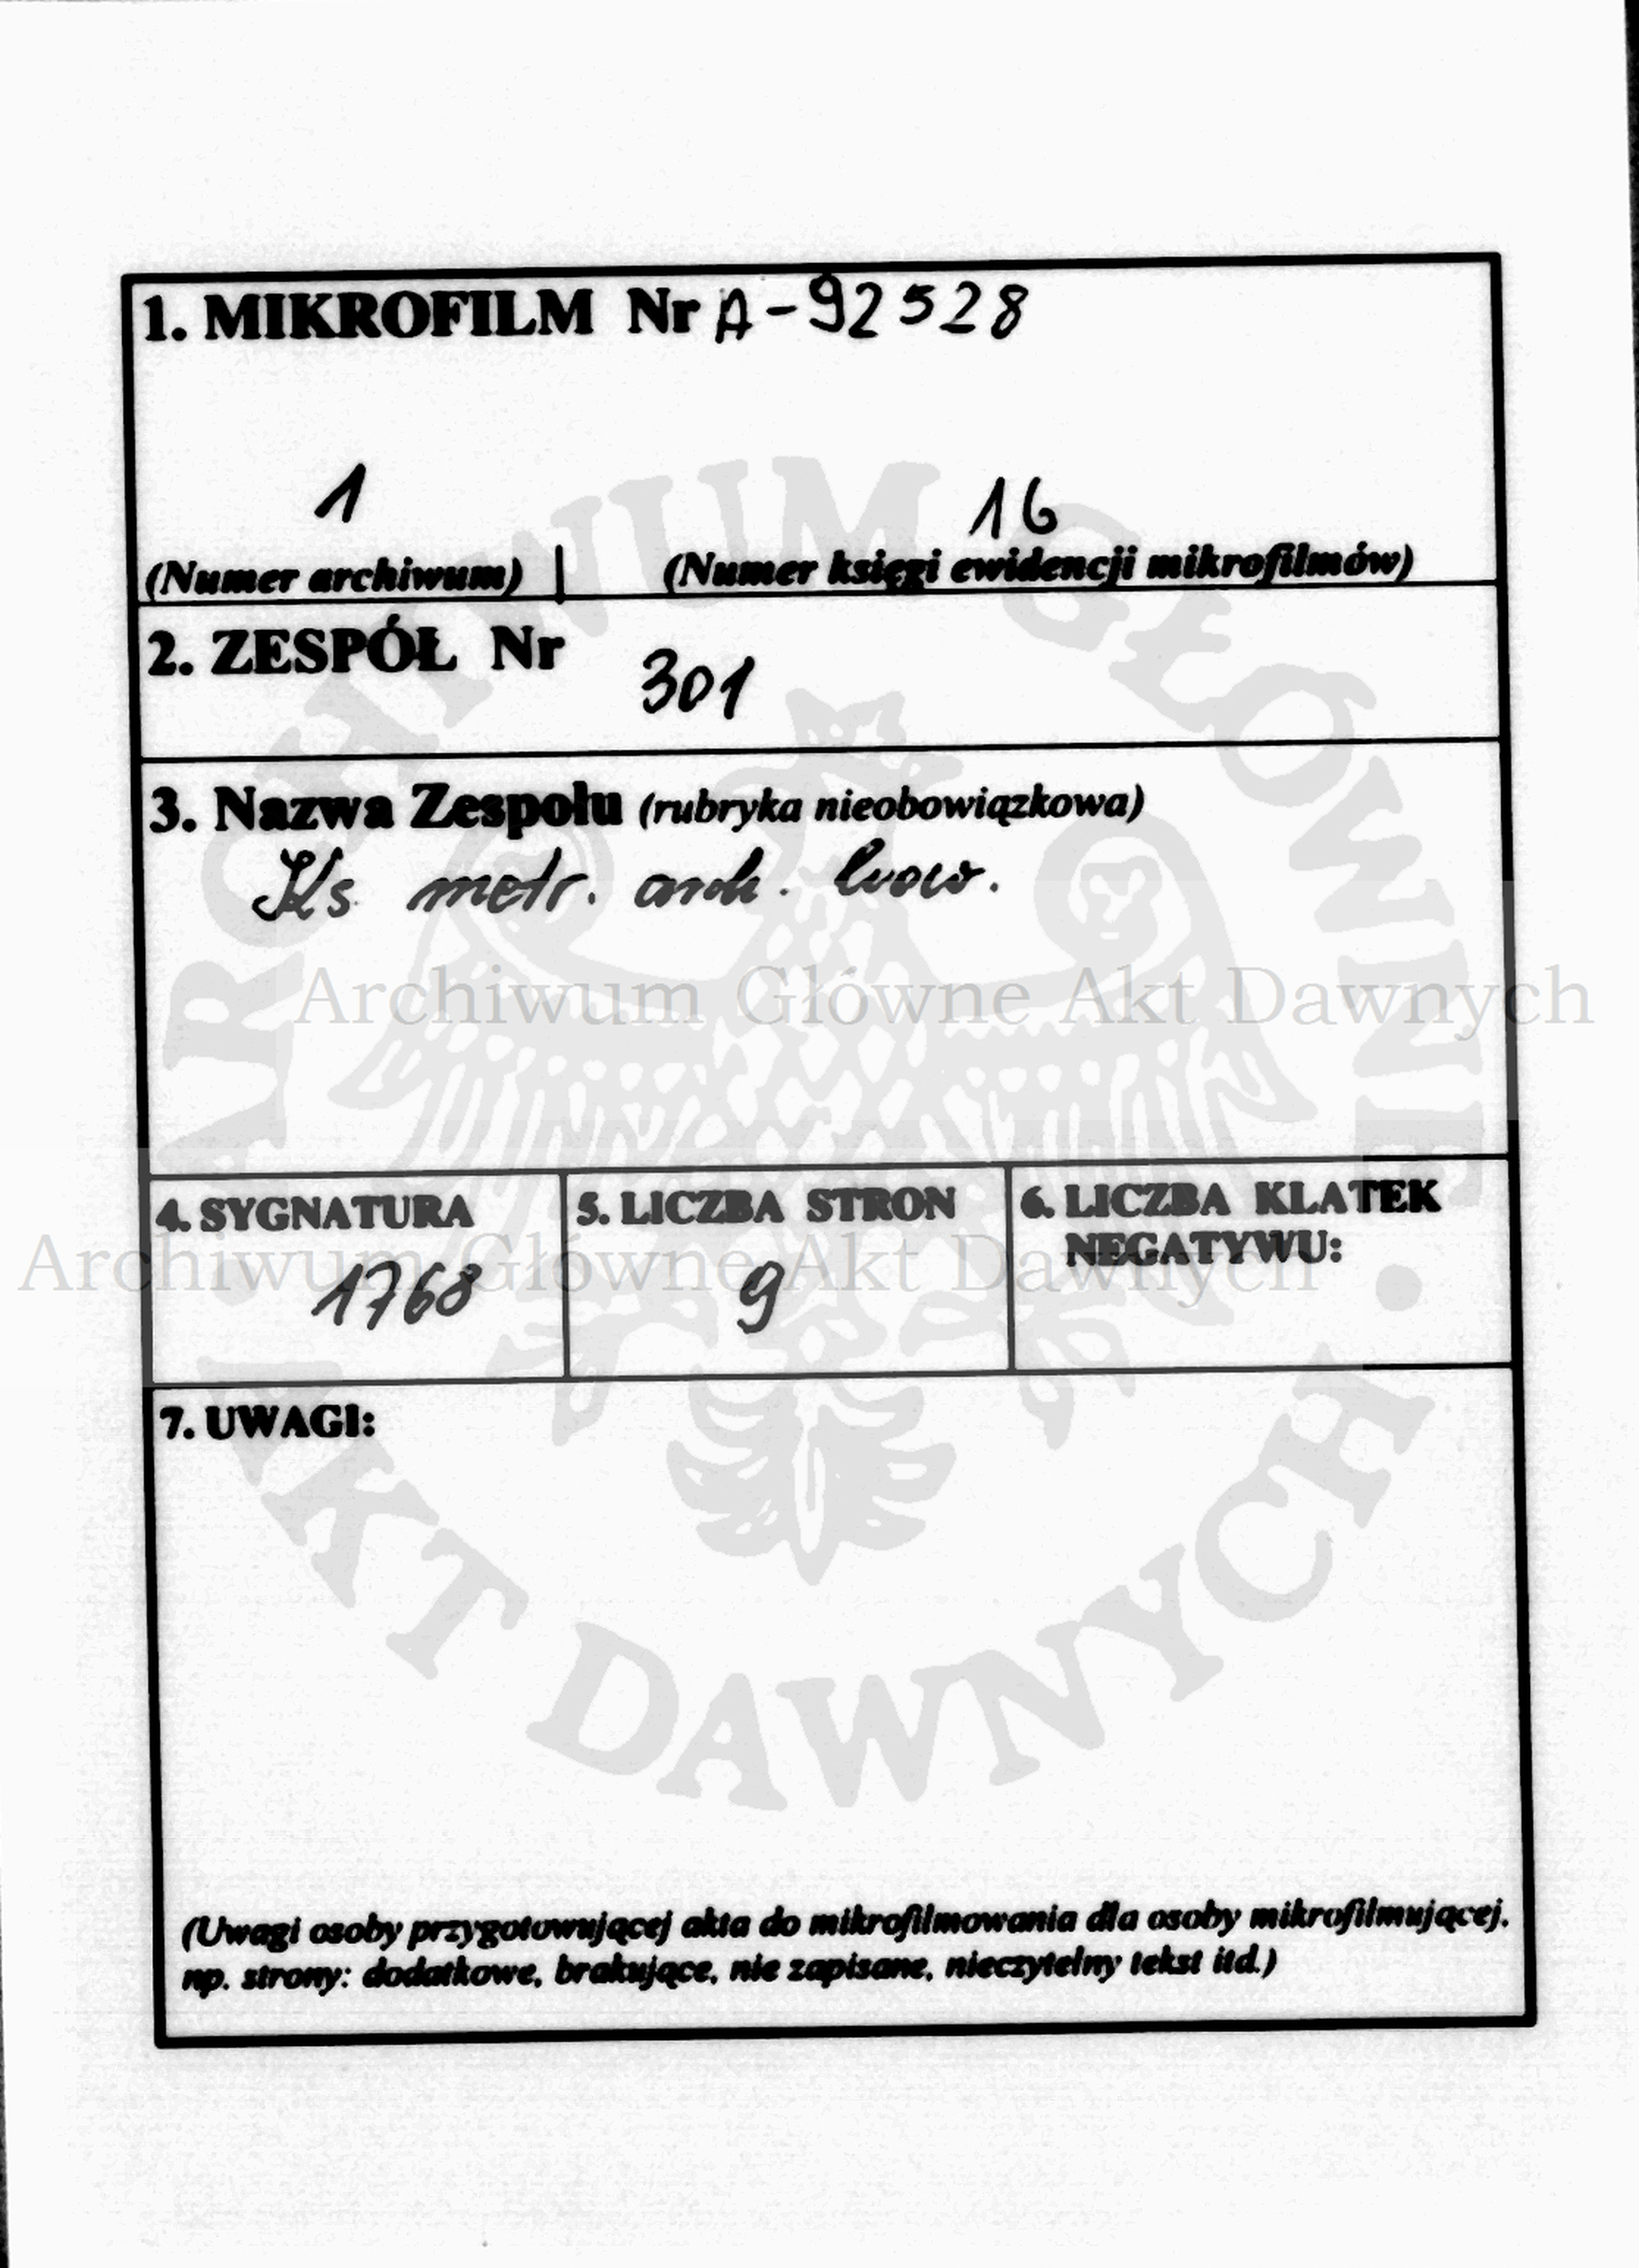 1. MIKROFILM Nr A-92528
1 16
(Numer archiwum) | (Numer księgi ewidencji mikrofilmów)
2. ZESPÓŁ Nr 301
3. Nazwa Zespołu (rubryka nieobowiązkowa)
Ks metr. arch. lwow.
Archiwum Główne Akt Dawnych
4. SYGNATURA 5. LICZBA STRON 6. LICZBA KLATEK
NEGATYWU:
Archiwum Główne Akt Dawnych
1768 9
7. UWAGI:
(Uwagi osoby przygotowującej akta do mikrofilmowania dla osoby mikrofilmującej,
np. strony: dodatkowe, brakujące, nie zapisane, nieczytelny tekst itd.)
ARCHIWUM GŁÓWNE • AKT DAWNYCH •